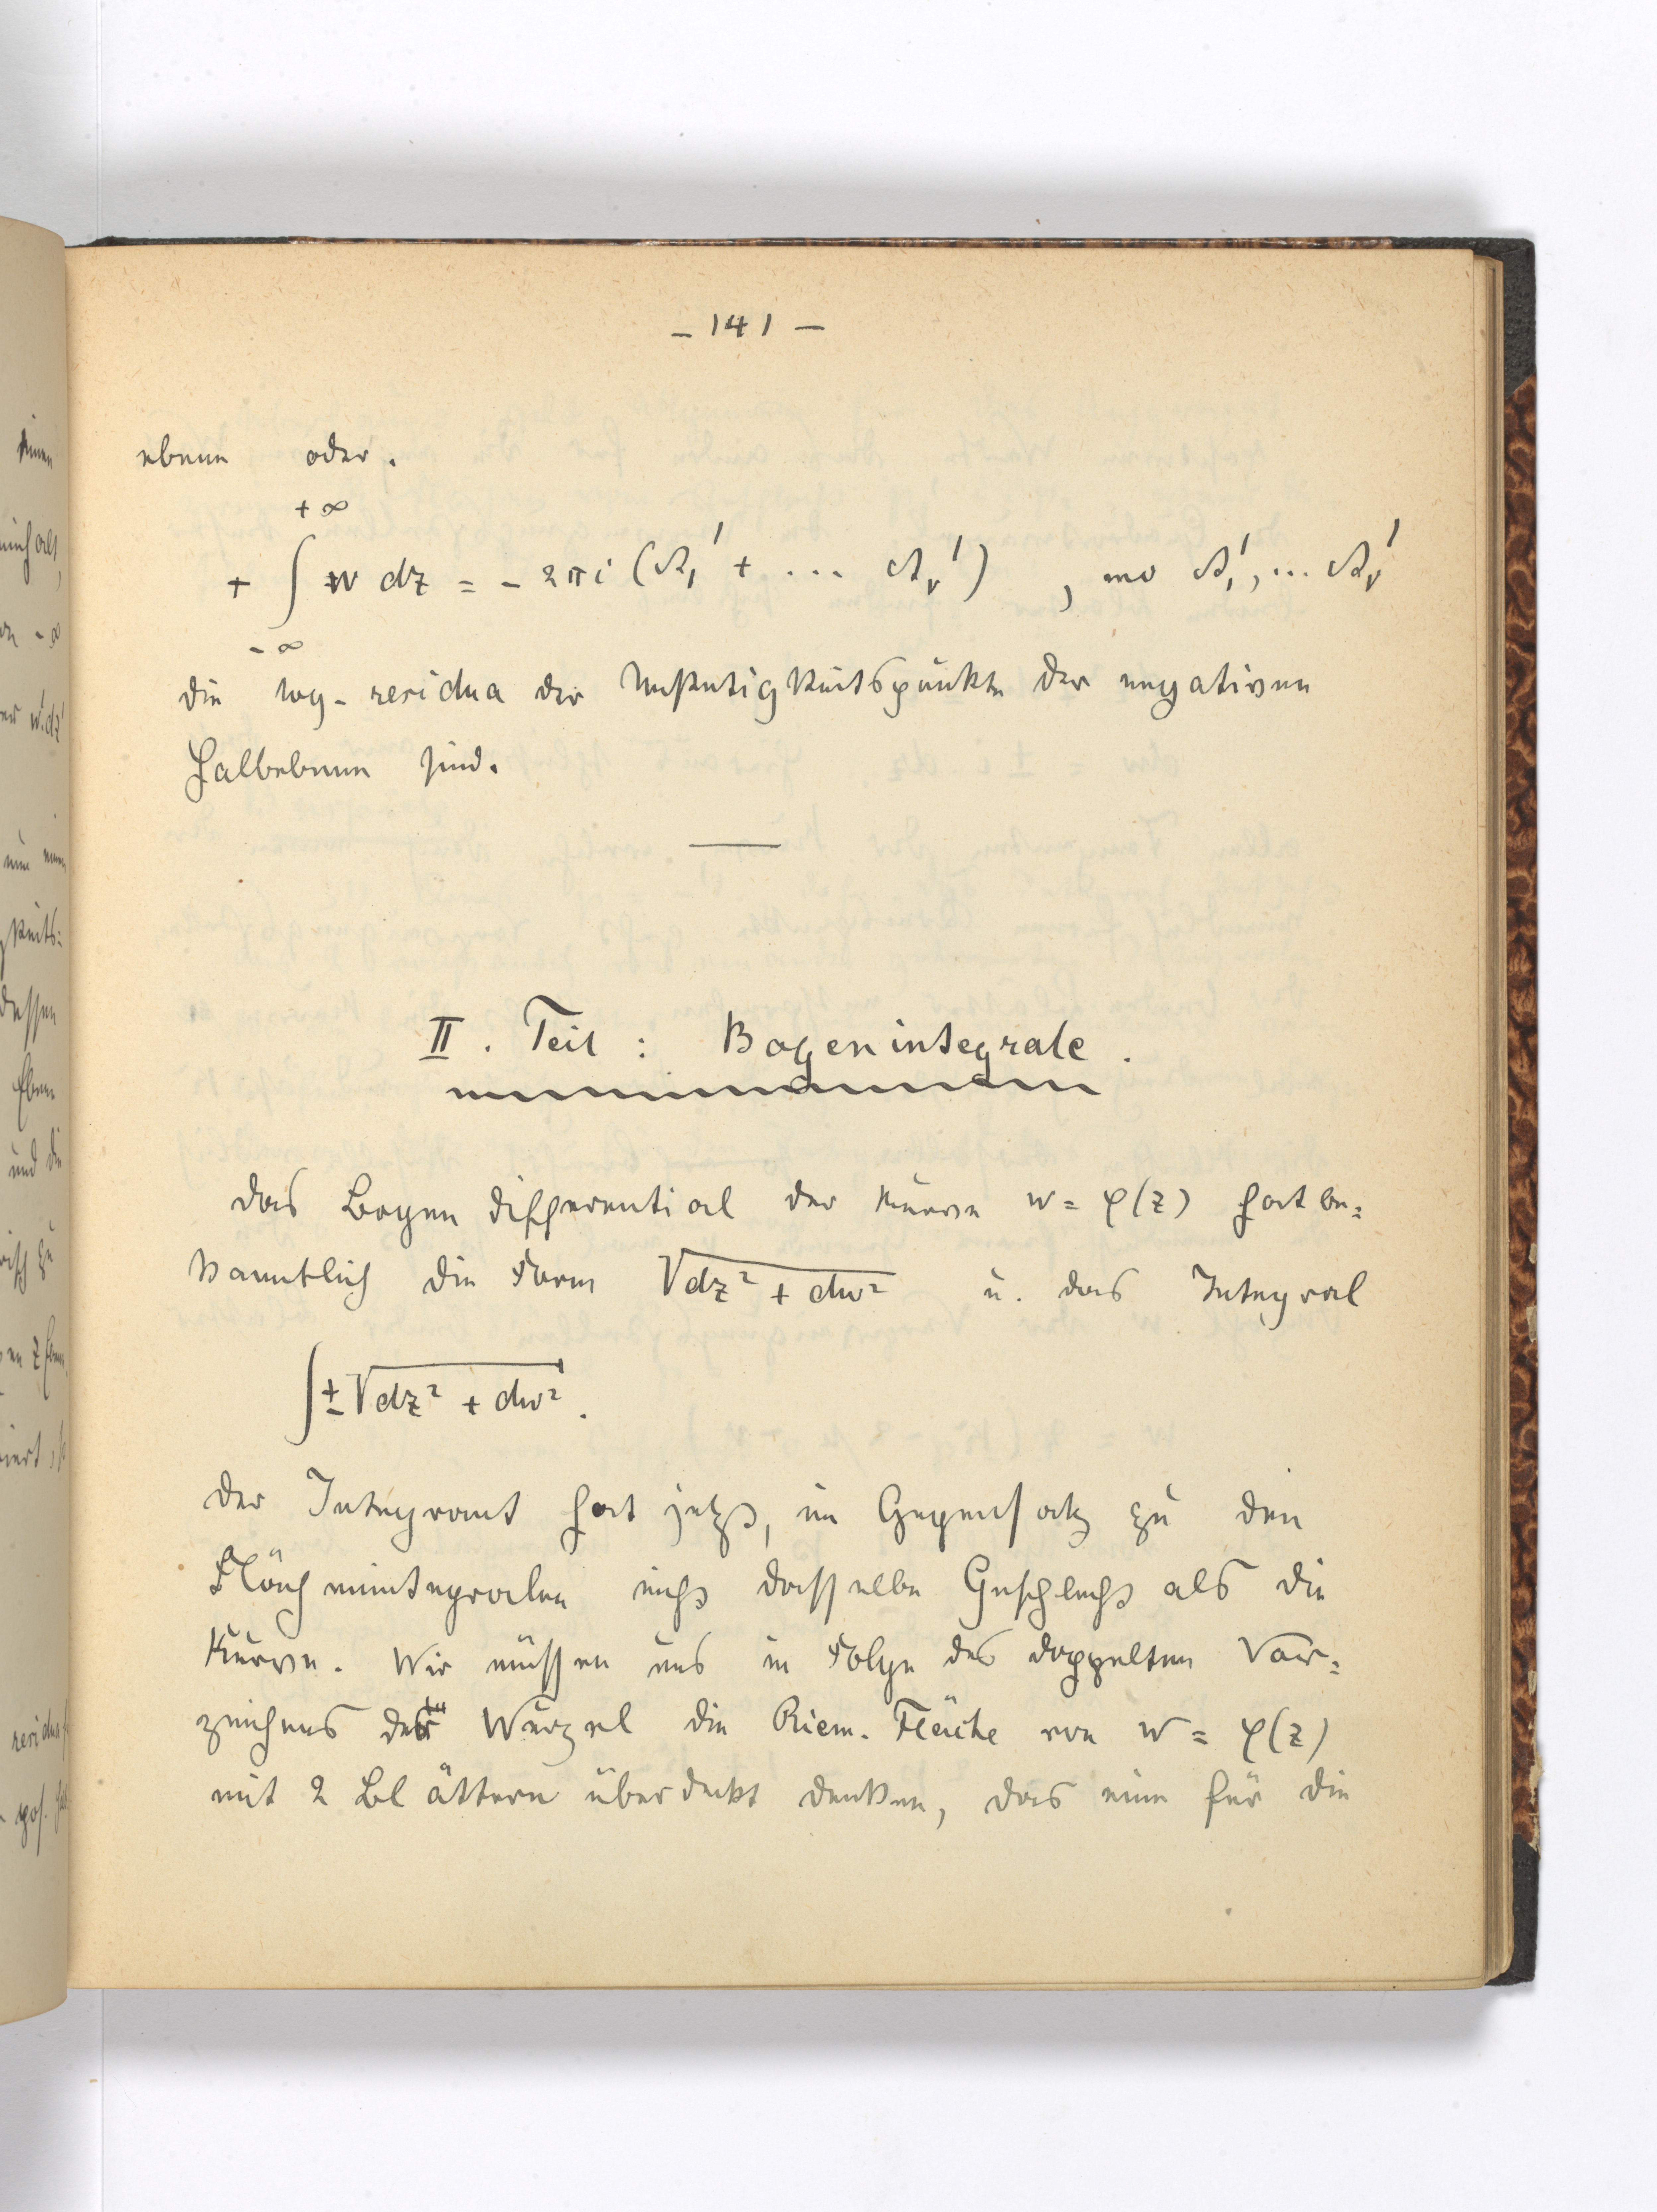 - 141 -
ebene oder.
+ ∫_{-∞}^{+∞} w dz = - 2πi (A₁' + ... Aᵥ') , wo A₁', ... Aᵥ'
die log-residua der Unstetigkeitspunkte der negativen
Halbebene sind.
II. Teil : Bogenintegrale.
Das Bogendifferential der Kurve w = φ(z) hat be=
kanntlich die Form √dz² + dw² u. das Integral
∫ ± √dz² + dw².
Der Integrant hat jetzt, im Gegensatz zu den
Flächenintegralen nicht dasselbe Geschlecht als die
Kurve. Wir müssen uns in Folge des doppelten Vor=
zeichens der Wurzel die Riem. Fläche von w = φ(z)
mit 2 Blättern überdeckt denken, das eine für die